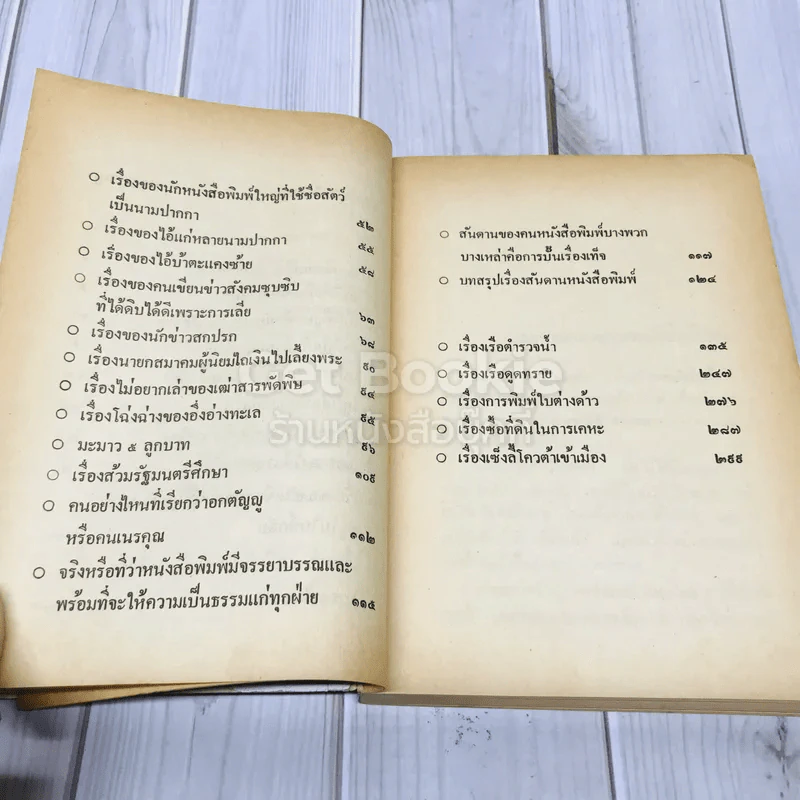 ○ เรื่องของนักหนังสือพิมพ์ใหญ่ที่ใช้ชื่อสัตว์
เป็นนามปากกา ๕๒
○ เรื่องของไอ้แก่หลายนามปากกา ๕๕
○ เรื่องของไอ้บ้าตะแคงซ้าย ๕๘
○ เรื่องของคนเขียนข่าวสังคมซุบซิบ
ที่ได้ดิบได้ดีเพราะการเลีย ๖๓
○ เรื่องของนักข่าวสกปรก ๖๘
○ เรื่องนายกสมาคมผู้นิยมไถเงินไปเลี้ยงพระ ๙๐
○ เรื่องไม่อยากเล่าของเฒ่าสารพัดพิษ ๙๔
○ เรื่องโฉ่งฉ่างของอึ่งอ่างทะเล ๙๕
○ มะมาว ๕ ลูกบาท ๙๖
○ เรื่องส้วมรัฐมนตรีศึกษา ๑๐๙
○ คนอย่างไหนที่เรียกว่าอกตัญญู
หรือคนเนรคุณ ๑๑๒
○ จริงหรือที่ว่าหนังสือพิมพ์มีจรรยาบรรณและ
พร้อมที่จะให้ความเป็นธรรมแก่ทุกฝ่าย ๑๑๕
○ สันดานของคนหนังสือพิมพ์บางพวก
บางเหล่าคือการปั้นเรื่องเท็จ ๑๑๗
○ บทสรุปเรื่องสันดานหนังสือพิมพ์ ๑๒๔
○ เรื่องเรือตำรวจน้ำ ๑๓๕
○ เรื่องเรือดูดทราย ๒๔๗
○ เรื่องการพิมพ์ใบต่างด้าว ๒๗๖
○ เรื่องซื้อที่ดินในการเคหะ ๒๘๗
○ เรื่องเซ็งลี้โควต้าเข้าเมือง ๒๙๙
Get Bookie
ร้านหนังสือบุ๊คกี้